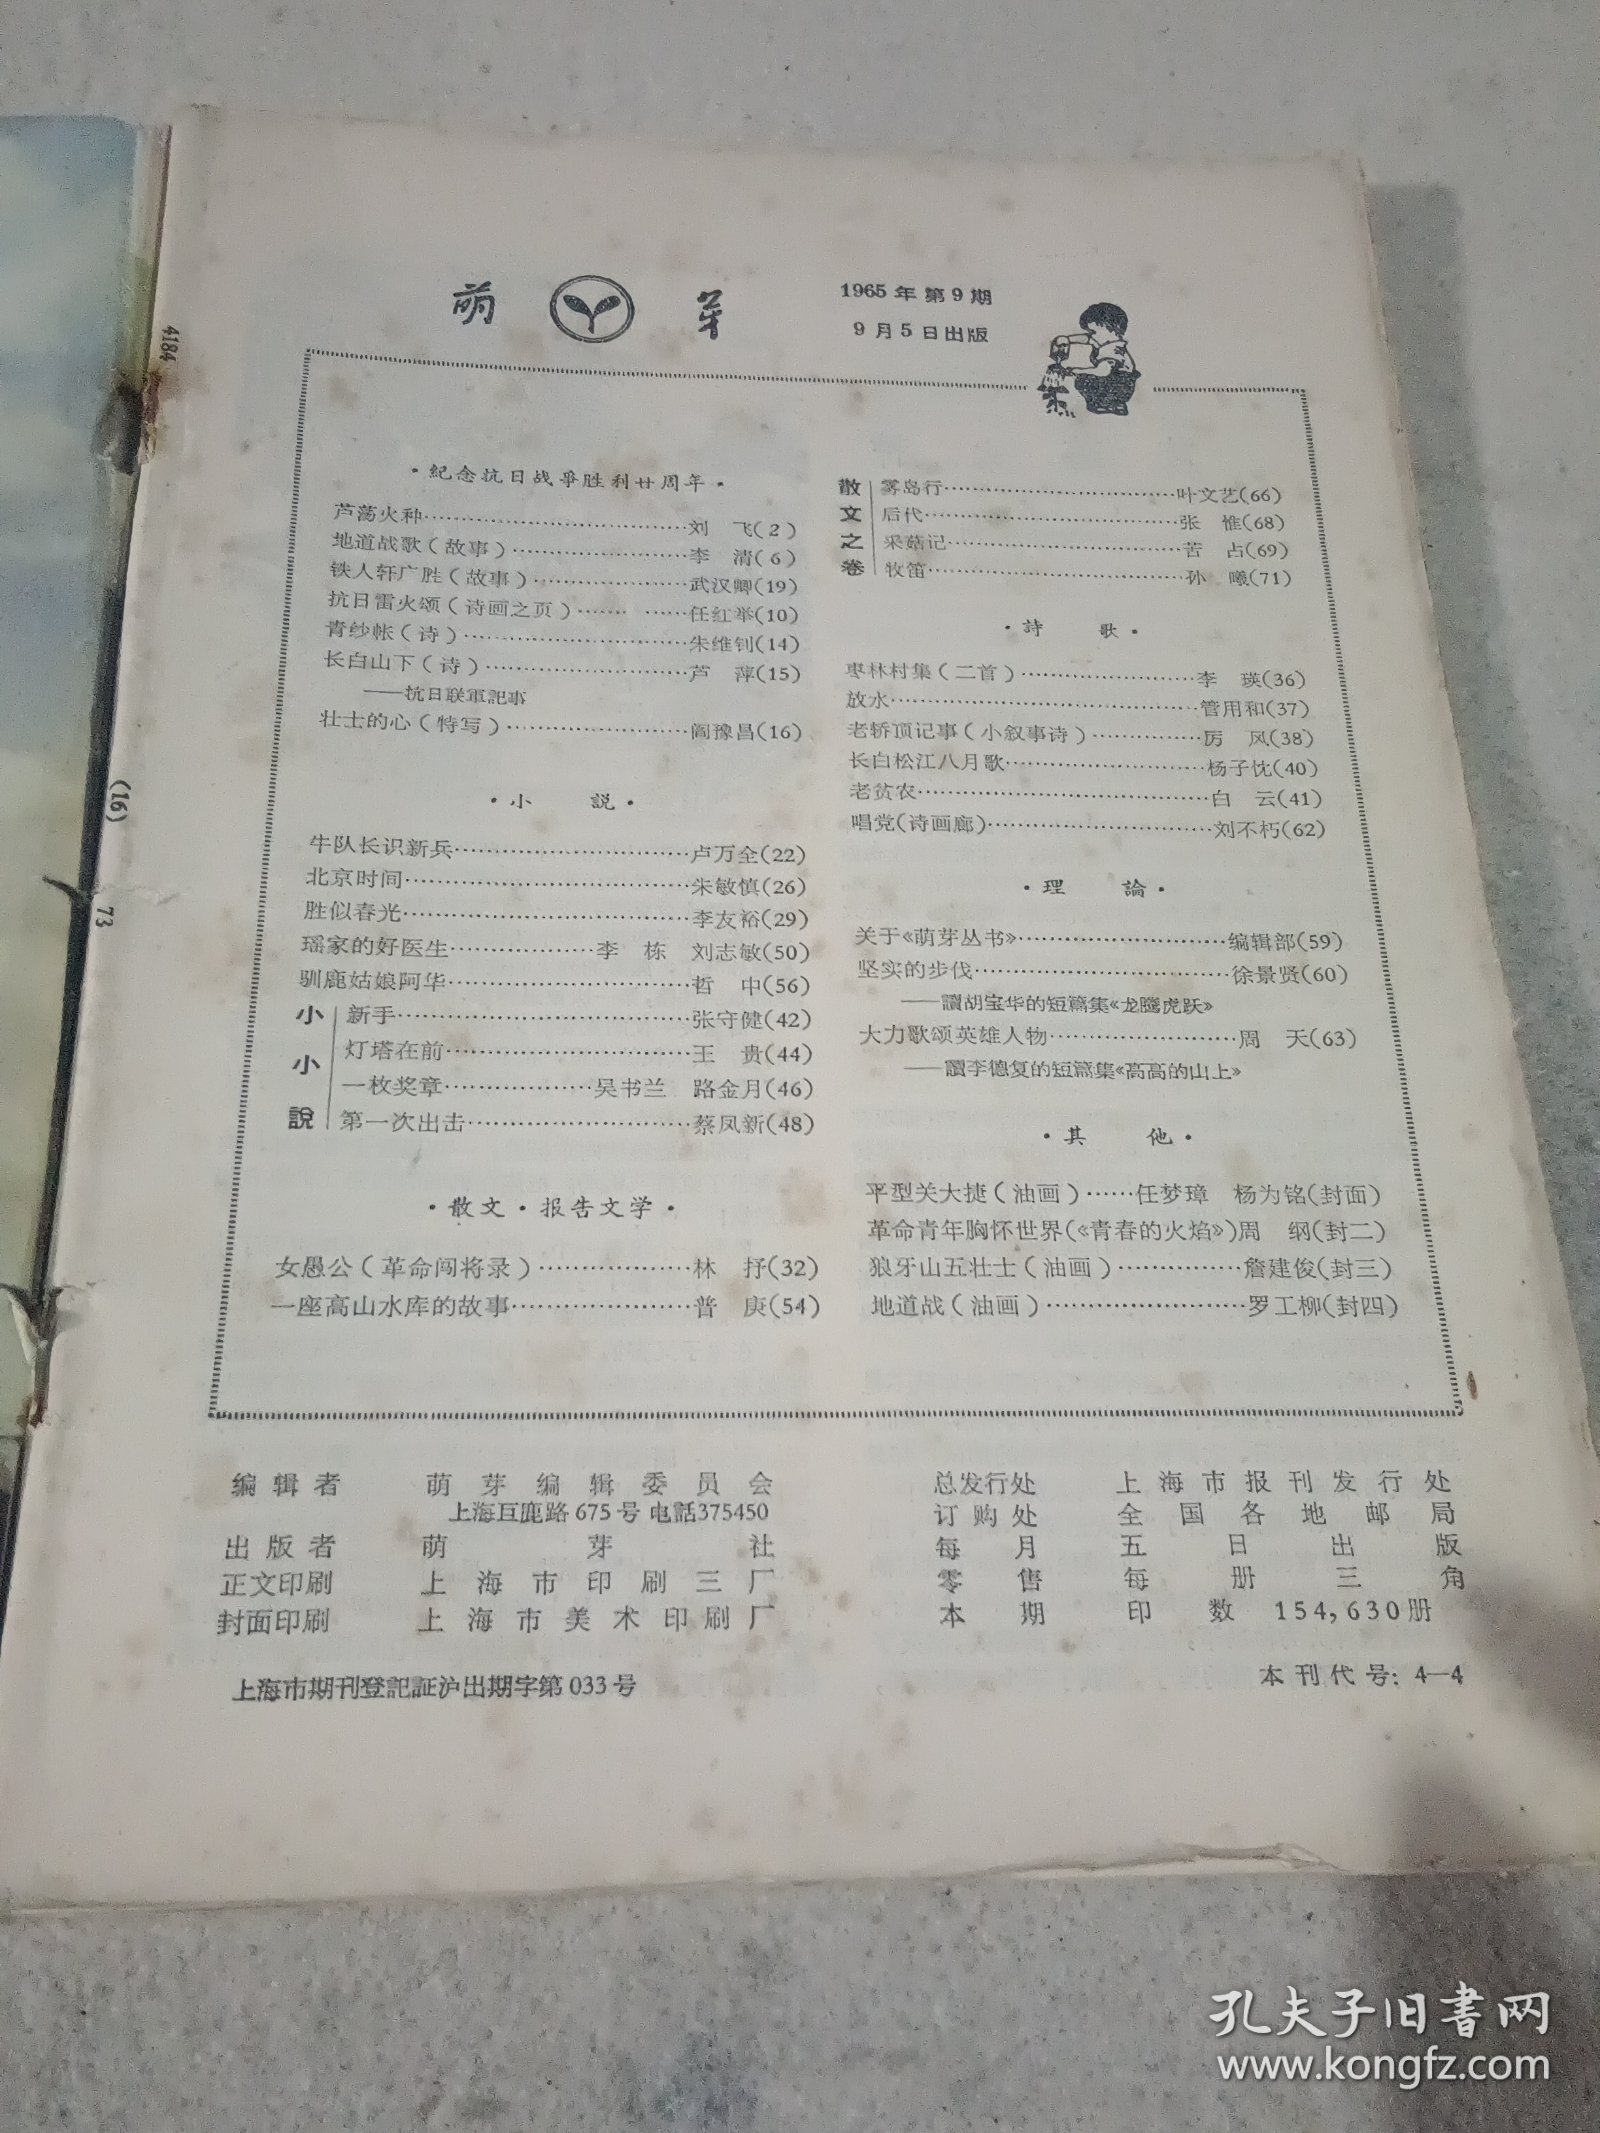 萌 芽
1965年第9期
9月5日出版
·紀念抗日战爭胜利廿周年·
芦荡火种……刘 飞(2)
地道战歌(故事)……李 清(6)
铁人轩广胜(故事)……武汉卿(19)
抗日雷火颂(诗画之页)……任红举(10)
青纱帐(诗)……朱维钊(14)
长白山下(诗)……芦 萍(15)
——抗日联軍記事
壮士的心(特写)……阎豫昌(16)
·小 説·
牛队长识新兵……卢万全(22)
北京时间……朱敏慎(26)
胜似春光……李友裕(29)
瑶家的好医生……李 栋 刘志敏(50)
驯鹿姑娘阿华……哲 中(56)
小小說
新手……张守健(42)
灯塔在前……王 贵(44)
一枚奖章……吴书兰 路金月(46)
第一次出击……蔡凤新(48)
·散文·报告文学·
女愚公(革命闯将录)……林 抒(32)
一座高山水库的故事……普 庚(54)
散文之卷
雾岛行……叶文艺(66)
后代……张 惟(68)
采菇记……苦 占(69)
牧笛……孙 曦(71)
·詩 歌·
枣林村集(二首)……李 瑛(36)
放水……管用和(37)
老轿顶记事(小叙事诗)……厉 风(38)
长白松江八月歌……杨子忱(40)
老贫农……白 云(41)
唱党(诗画廊)……刘不朽(62)
·理 論·
关于《萌芽丛书》……编辑部(59)
坚实的步伐……徐景贤(60)
——讀胡宝华的短篇集《龙腾虎跃》
大力歌颂英雄人物……周 天(63)
——讀李德复的短篇集《高高的山上》
·其 他·
平型关大捷(油画)……任梦璋 杨为铭(封面)
革命青年胸怀世界(《青春的火焰》)周 纲(封二)
狼牙山五壮士(油画)……詹建俊(封三)
地道战(油画)……罗工柳(封四)
编辑者 萌芽编辑委员会
上海巨鹿路675号 电話375450
出版者 萌芽社
正文印刷 上海市印刷三厂
封面印刷 上海市美术印刷厂
上海市期刊登記証沪出期字第033号
总发行处 上海市报刊发行处
订购处 全国各地邮局
每月五日出版
零售每册三角
本期印数 154,630册
本刊代号: 4—4
4184
(16)
73
孔夫子旧書网
www.kongfz.com